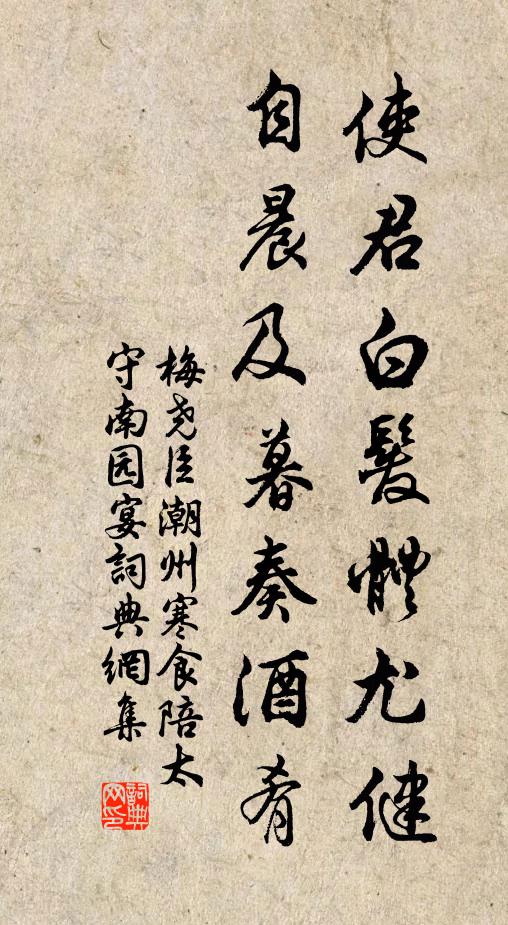 使君白髮體尤健
自晨及暮奏酒肴
梅尧臣潮州寒食陪太
守南园宴詞典網集
詞典
网印